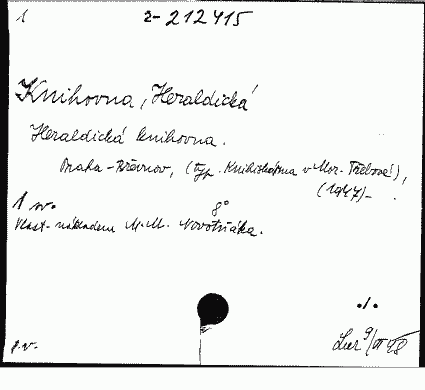 1 2-212415
Knihovna, Heraldická
Heraldická knihovna.
Praha-Břevnov, (typ. Knihtiskárna v Mor. Třebové),
(1947)- .
1 sv. 8°
Vlast. nákladem M.M. Novotňáka.
./.
p.v. 9/VI 48